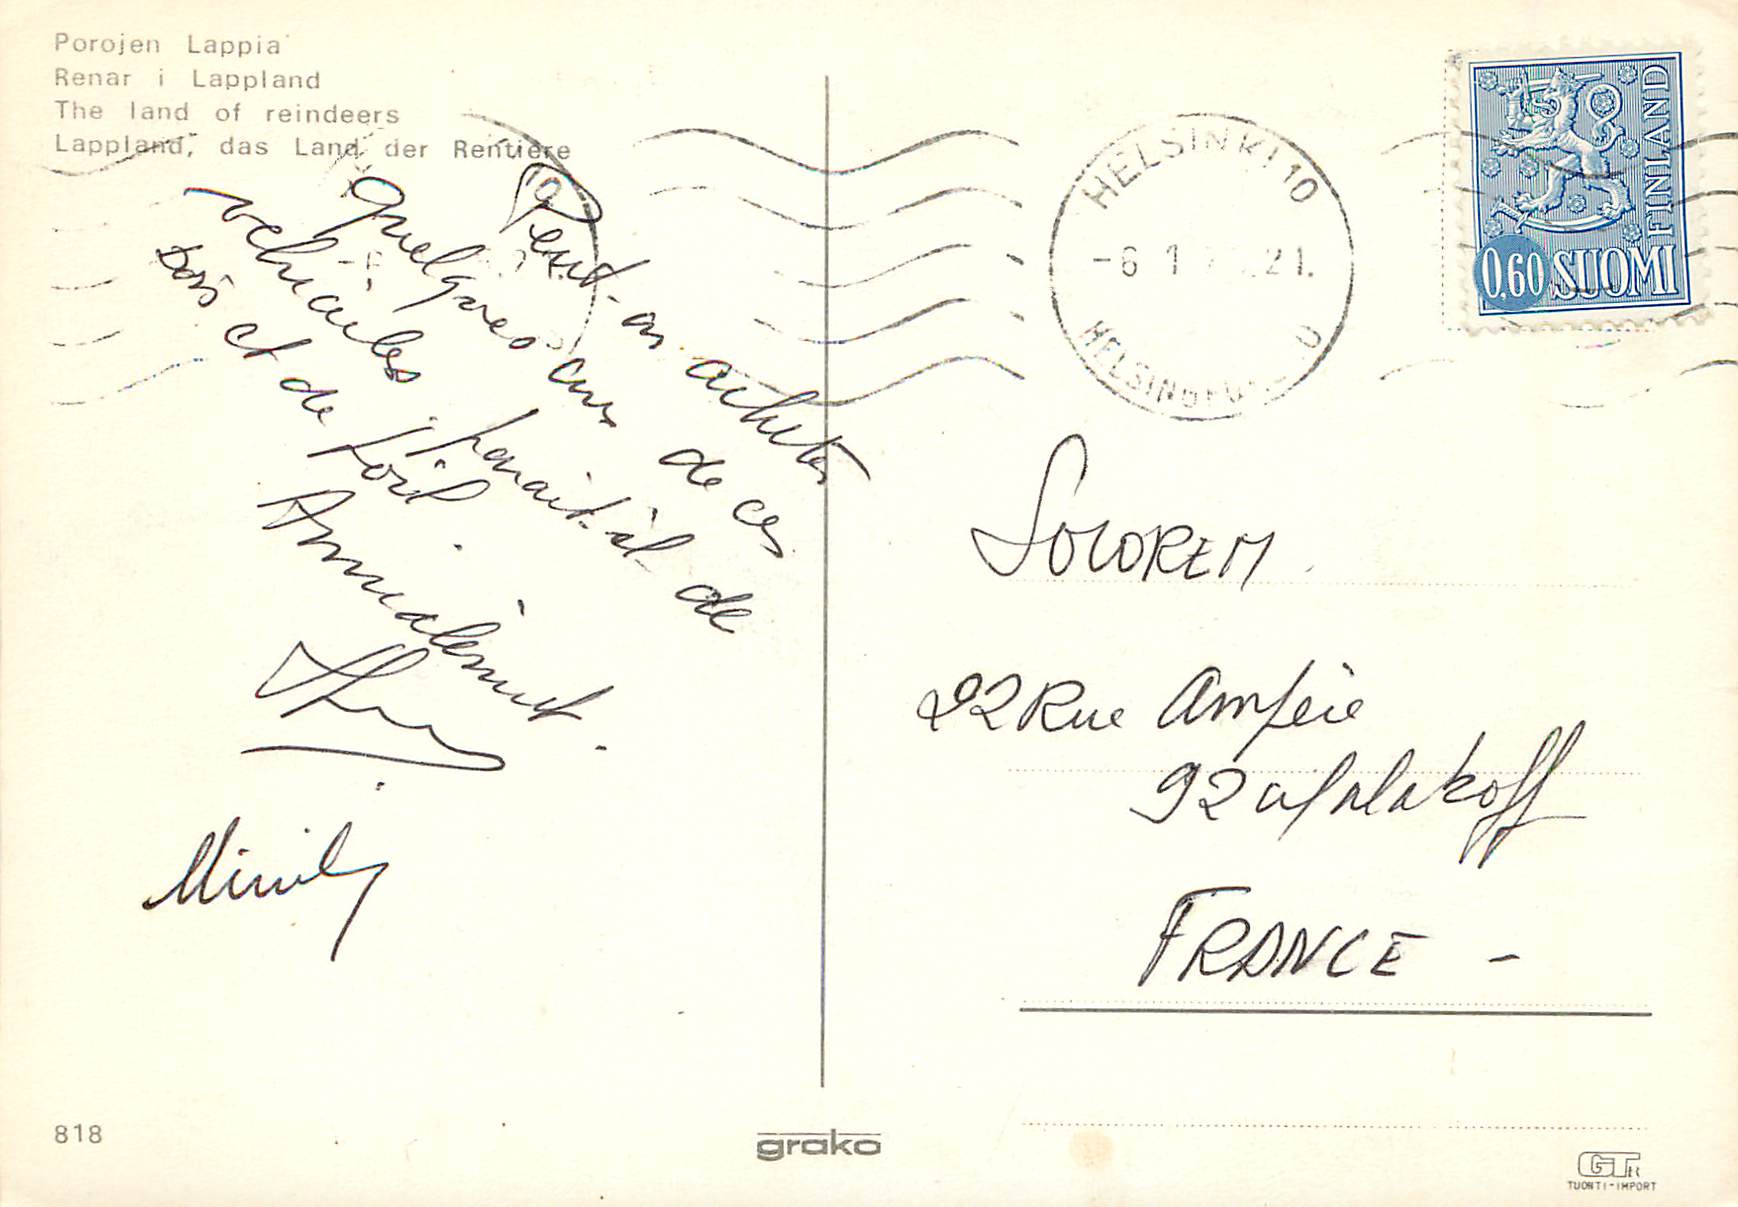 Porojen Lappia
Renar i Lappland
The land of reindeers
Lappland, das Land der Rentiere
Peut-on acheter
quelques uns de ces
véhicules, parait-il de
bois et de
Amicalement.
HELSINKI 10
-6 1 21.
HELSINGFORS
FINLAND
0,60 SUOMI
SOCOREM
22 Rue Ampère
92 Malakoff
FRANCE -
818
grako
GT
TUONTI-IMPORT